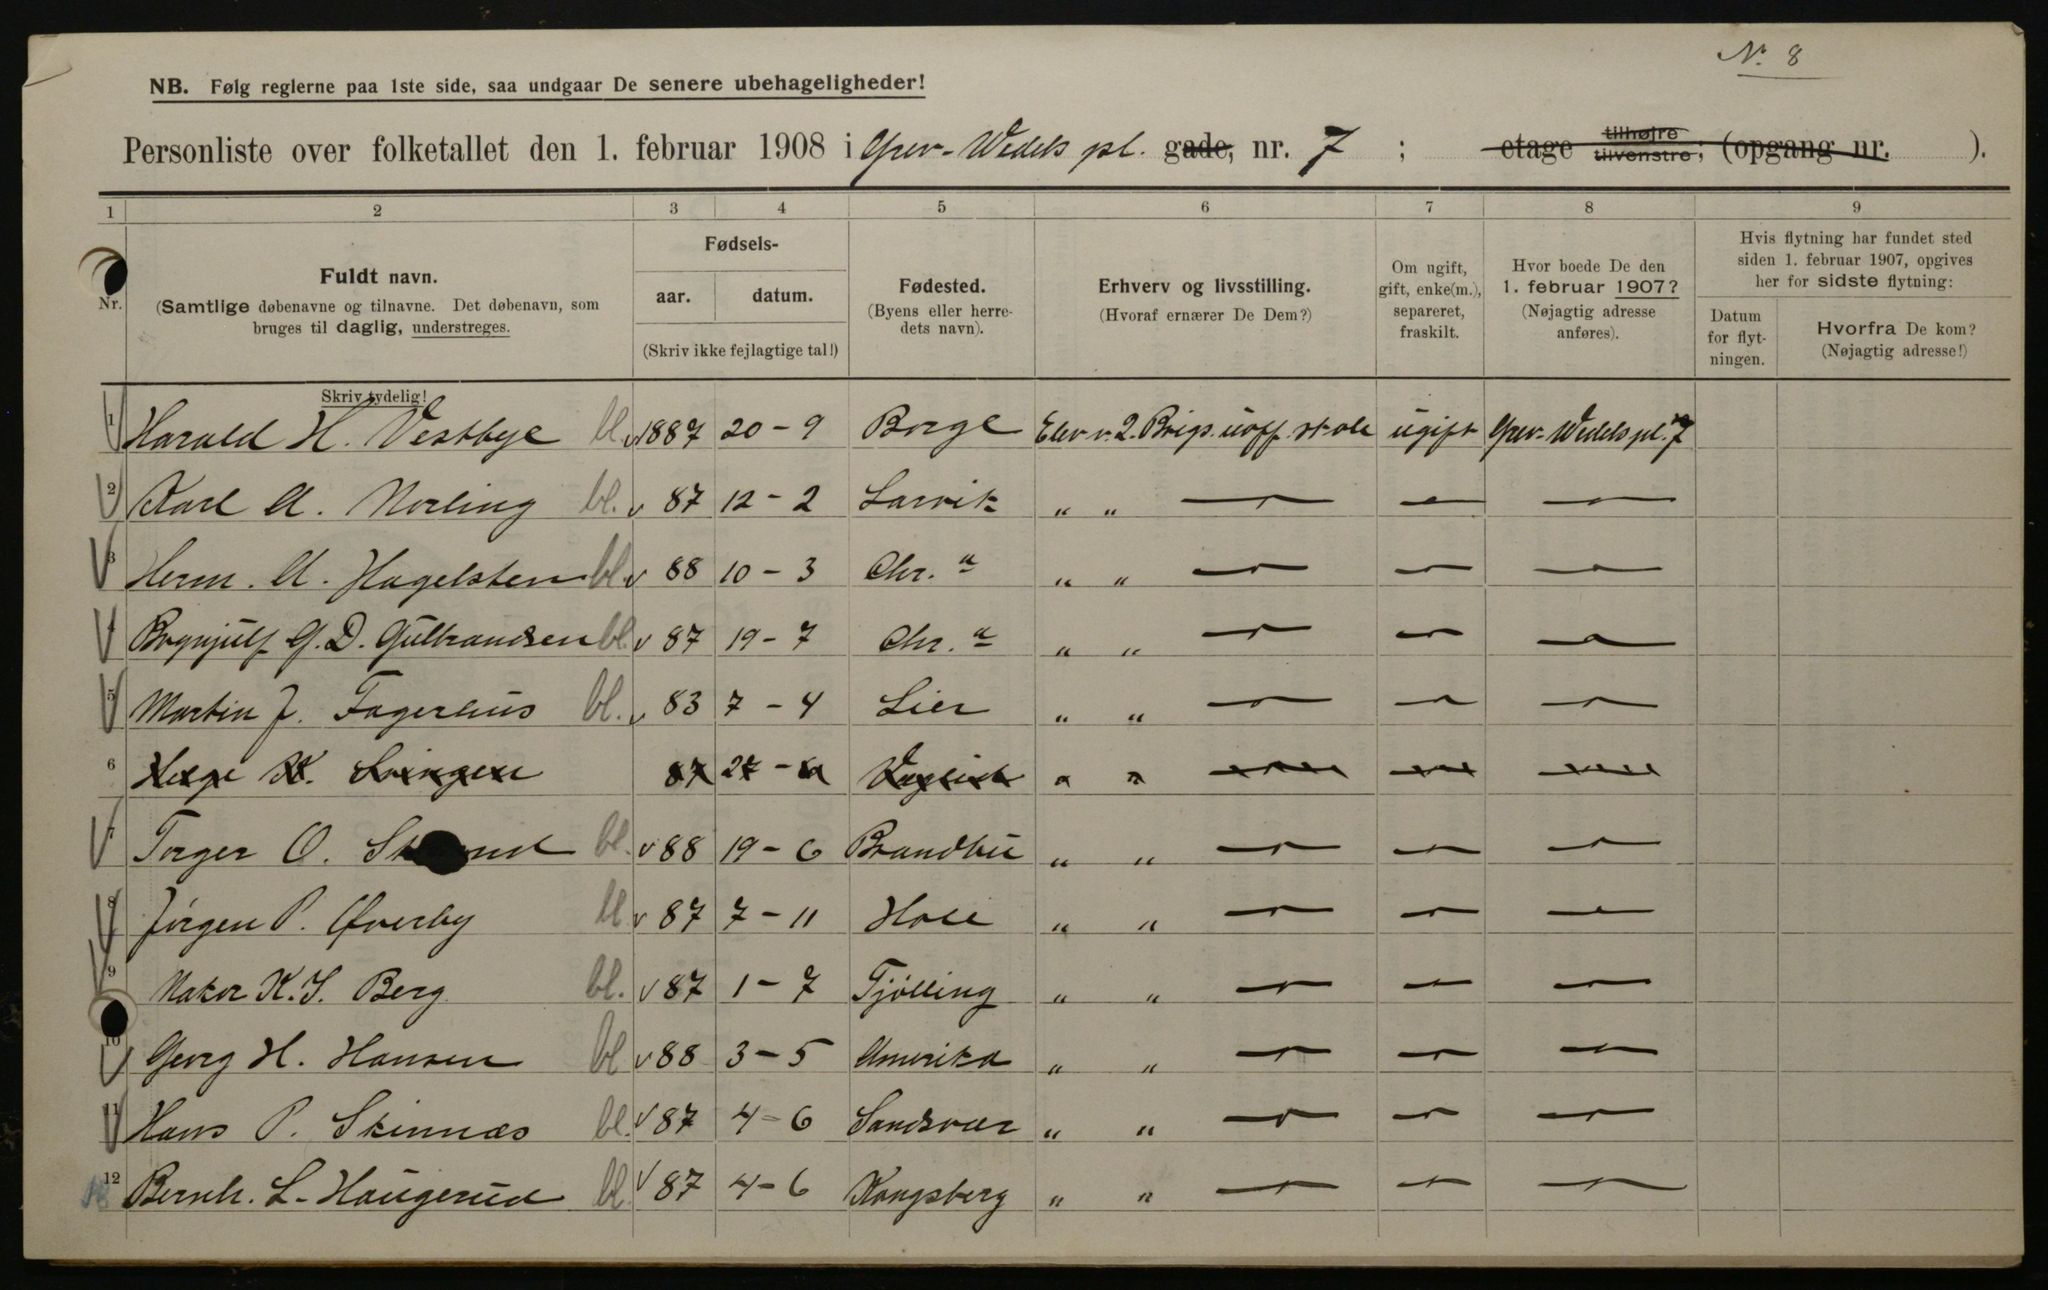 Nr. 8
NB. Følg reglerne paa 1ste side, saa undgaar De senere ubehageligheder!
Personliste over folketallet den 1. februar 1908 i Grev-Wedels pl. gade, nr. 7 ; etage tilhøjre tilvenstre; (opgang nr. ).
1 2 3 4 5 6 7 8 9
Nr.
Fuldt navn.
(Samtlige døbenavne og tilnavne. Det døbenavn, som
bruges til daglig, understreges.
Skriv tydelig!
Fødsels-
aar. datum.
(Skriv ikke fejlagtige tal!)
Fødested.
(Byens eller herre-
dets navn).
Erhverv og livsstilling.
(Hvoraf ernærer De Dem?)
Om ugift,
gift, enke(m.),
separeret,
fraskilt.
Hvor boede De den
1. februar 1907?
(Nøjagtig adresse
anføres).
Hvis flytning har fundet sted
siden 1. februar 1907, opgives
her for sidste flytning:
Datum
for flyt-
ningen.
Hvorfra De kom?
(Nøjagtig adresse!)
1 Harald H. Vestbye bl. v 1887 20-9 Borge Elev v. 2. Brigs. uoff. skole ugift Grev-Wedels pl. 7
2 Karl A. Norling bl. v 87 12-2 Larvik " " — — —
3 Herm. A. Hagelsten bl. v 88 10-3 Chr.a " " — — —
4 Brynjulf G. D. Gulbrandsen bl. v 87 19-7 Chr.a " " — — —
5 Martin J. Fagerlius bl. v 83 7-4 Lier " " — — —
6 Helge K. 87 27- " " — — —
7 Torger O. bl. v 88 19-6 Brandbu " " — — —
8 Jørgen P. Øverby bl v 87 7-11 Hole " " — — —
9 K. S. Berg bl. v 87 1-7 Tjølling " " — — —
10 Georg H. Hansen bl v 88 3-5 Amerika " " — — —
11 Hans P. Skinnæs bl. v 87 4-6 Sandsvær " " — — —
12 Bernh. L. Haugerud bl. v 87 4-6 Kongsberg " " — — —